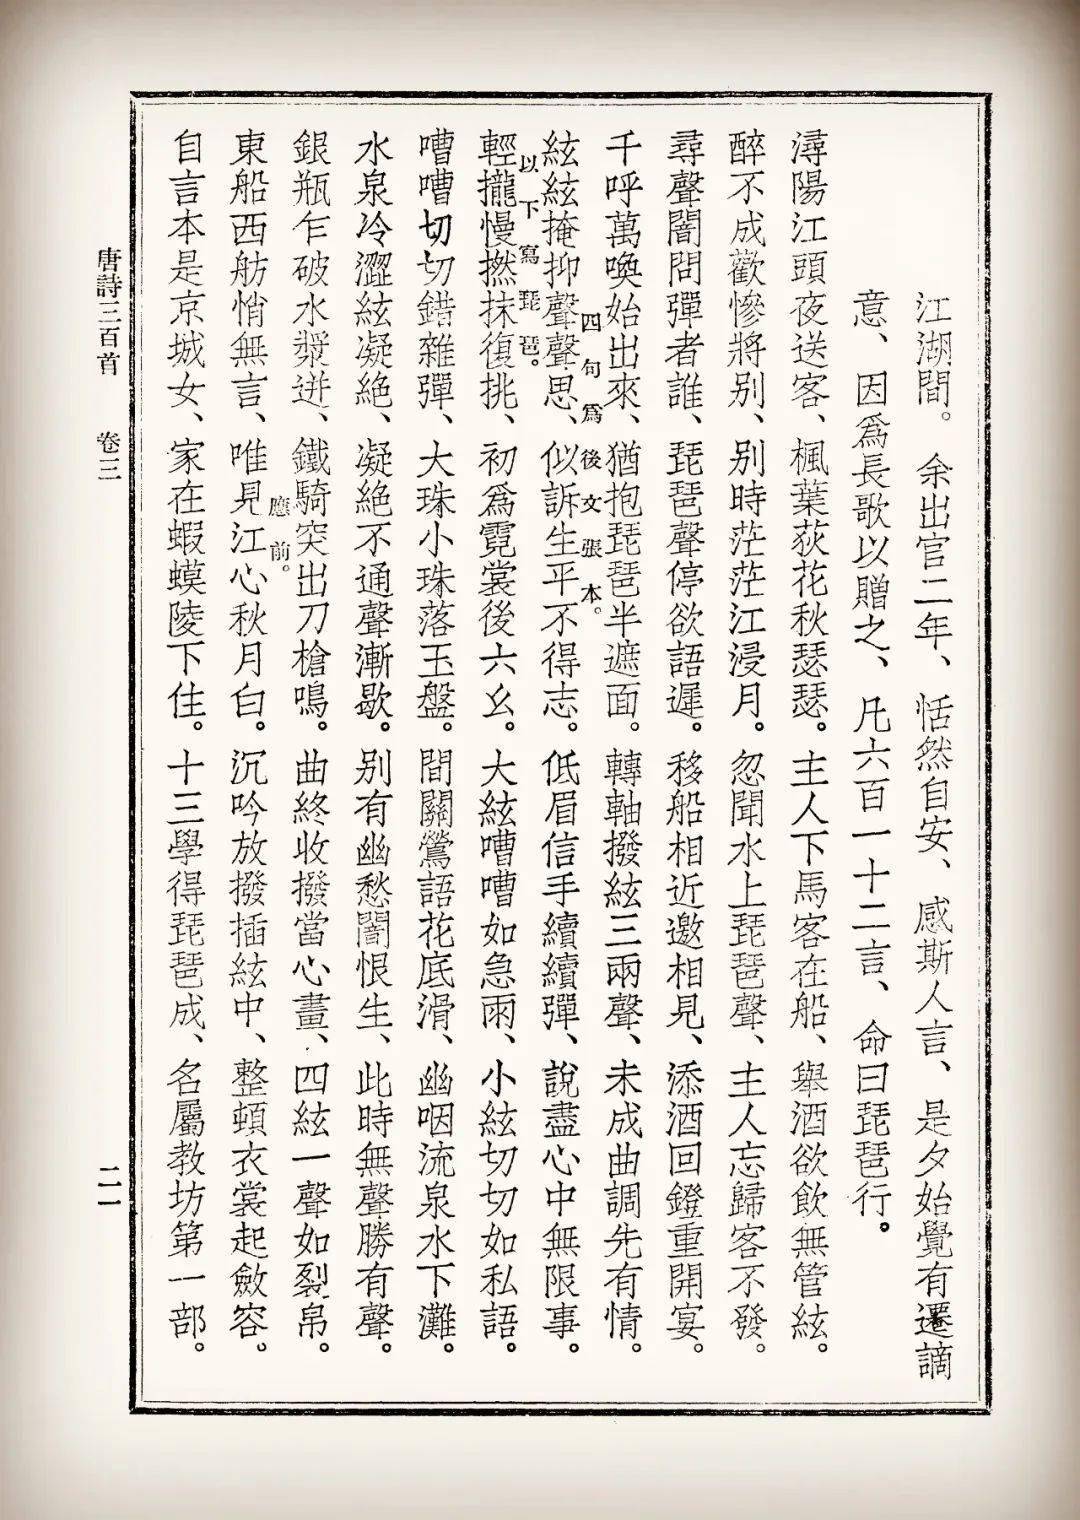 江湖間。余出官二年、恬然自安、感斯人言、是夕始覺有遷謫
意、因爲長歌以贈之、凡六百一十二言、命曰琵琶行。
潯陽江頭夜送客、楓葉荻花秋瑟瑟。主人下馬客在船、舉酒欲飲無管絃。
醉不成歡慘將別、別時茫茫江浸月。忽聞水上琵琶聲、主人忘歸客不發。
尋聲闇問彈者誰、琵琶聲停欲語遲。移船相近邀相見、添酒回鐙重開宴。
千呼萬喚始出來、猶抱琵琶半遮面。轉軸撥絃三兩聲、未成曲調先有情。
四句爲後文張本。
絃絃掩抑聲聲思、似訴生平不得志。低眉信手續續彈、說盡心中無限事。
以下寫琵琶。
輕攏慢撚抹復挑、初爲霓裳後六幺。大絃嘈嘈如急雨、小絃切切如私語。
嘈嘈切切錯雜彈、大珠小珠落玉盤。間關鶯語花底滑、幽咽流泉水下灘。
水泉冷澀絃凝絕、凝絕不通聲漸歇。別有幽愁闇恨生、此時無聲勝有聲。
銀瓶乍破水漿迸、鐵騎突出刀槍鳴。曲終收撥當心畫、四絃一聲如裂帛。
應前。
東船西舫悄無言、唯見江心秋月白。沉吟放撥插絃中、整頓衣裳起斂容。
自言本是京城女、家在蝦蟆陵下住。十三學得琵琶成、名屬教坊第一部。
唐詩三百首 卷三 二一